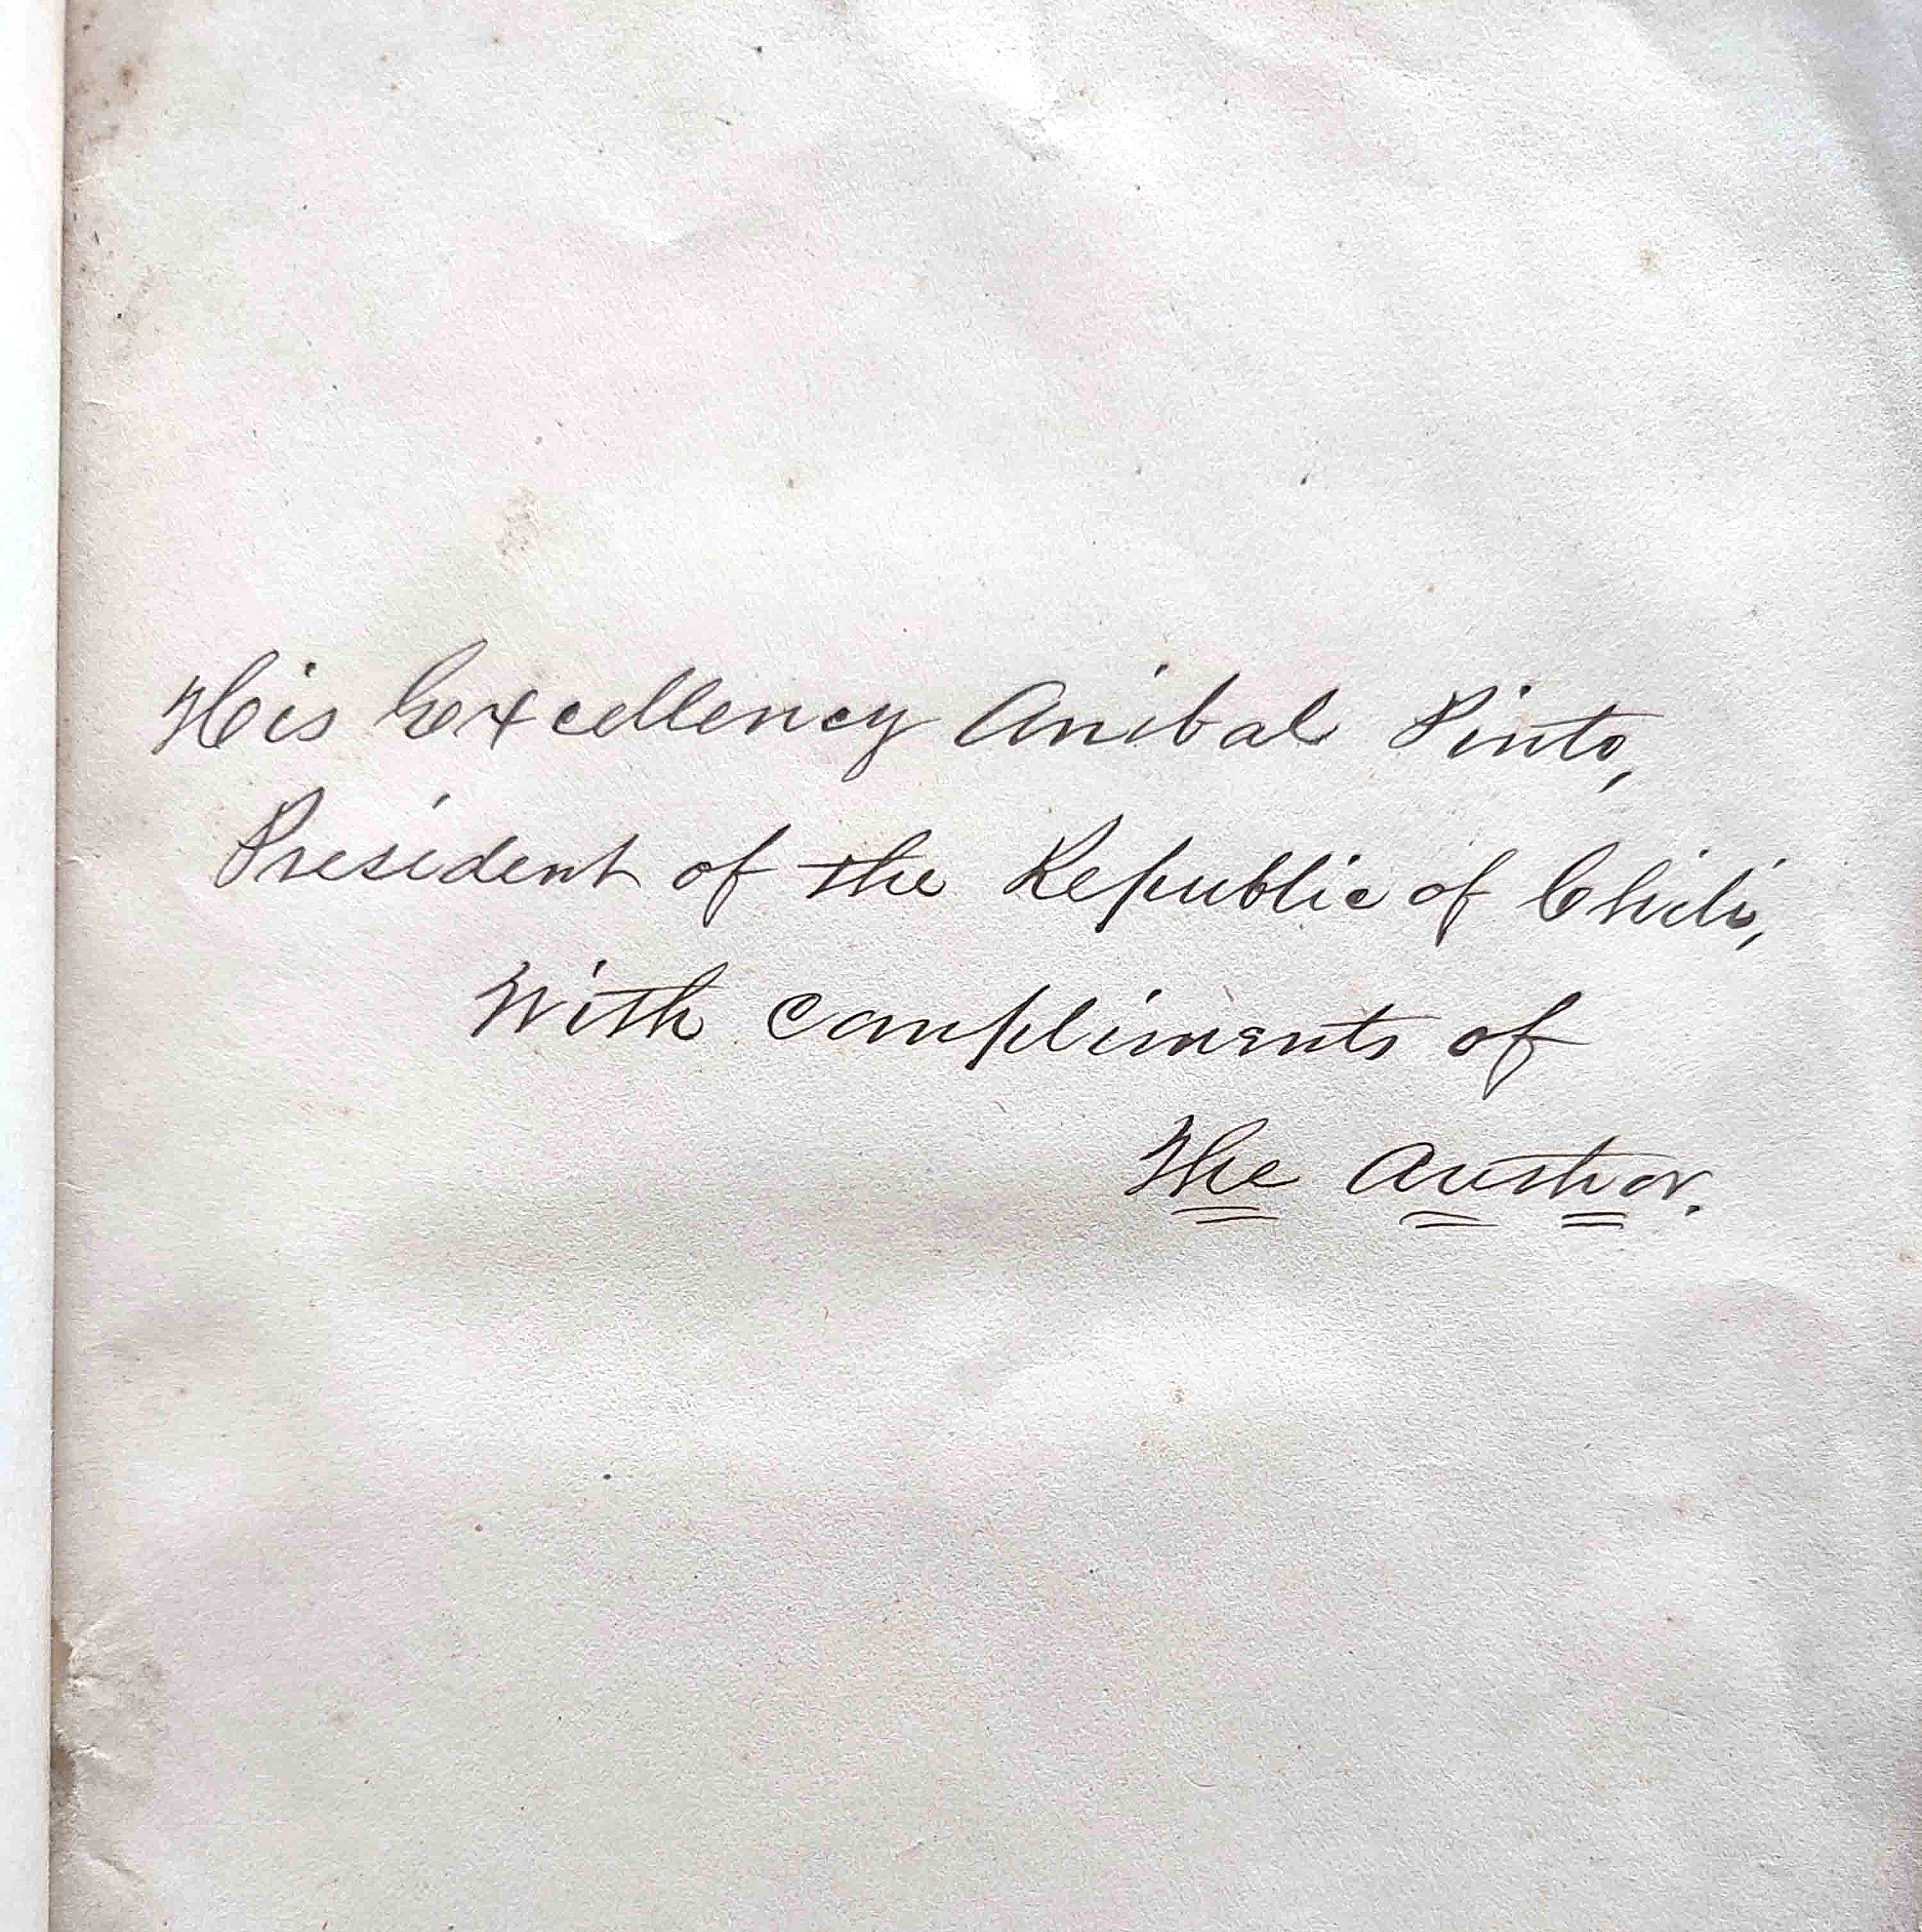 His Excellency Anibal Pinto,
President of the Republic of Chili,
With compliments of
The Author.